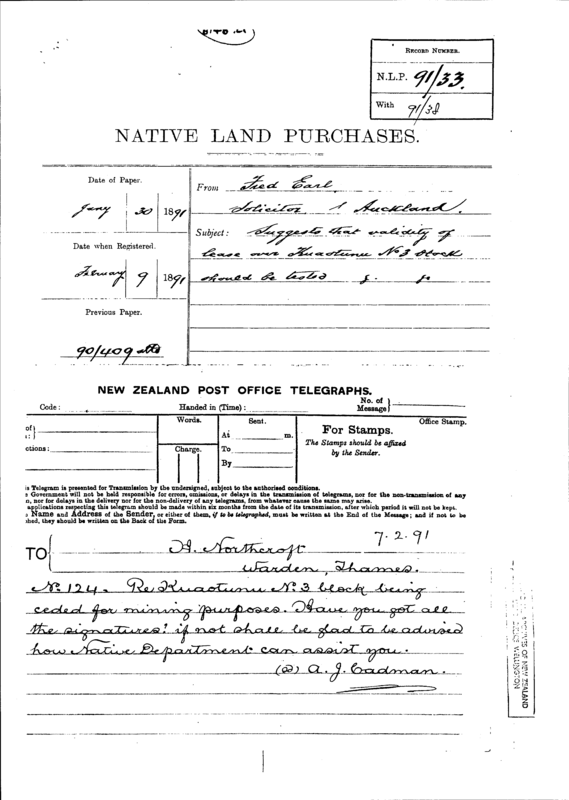 RECORD NUMBER.
N.L.P. 91/33.
With 91/38
NATIVE LAND PURCHASES.
Date of Paper.
Jany 30 1891
Date when Registered.
February 9 1891
Previous Paper.
90/409
From Fred Earl
Solicitor Auckland.
Subject: Suggests that validity of
lease over Kuaotunu No 3 block
should be tested
NEW ZEALAND POST OFFICE TELEGRAPHS.
Code: Handed in (Time): No. of Message
Words. Sent. For Stamps. Office Stamp.
of At m. The Stamps should be affixed
ctions: Charge. To by the Sender.
By
is Telegram is presented for Transmission by the undersigned, subject to the authorised conditions.
Government will not be held responsible for errors, omissions, or delays in the transmission of telegrams, nor for the non-transmission of any
n, nor for delays in the delivery nor for the non-delivery of any telegrams, from whatever cause the same may arise.
applications respecting this telegram should be made within six months from the date of its transmission, after which period it will not be kept.
Name and Address of the Sender, or either of them, if to be telegraphed, must be written at the End of the Message; and if not to be
hed, they should be written on the Back of the Form.
7.2.91
TO H. Northcroft
Warden, Thames.
No. 124. Re Kuaotunu No. 3 block being
ceded for mining purposes. Have you got all
the signatures? if not shall be glad to be advised
how Native Department can assist you.
(s) A. J. Cadman.
ARCHIVES OF NEW ZEALAND
WELLINGTON